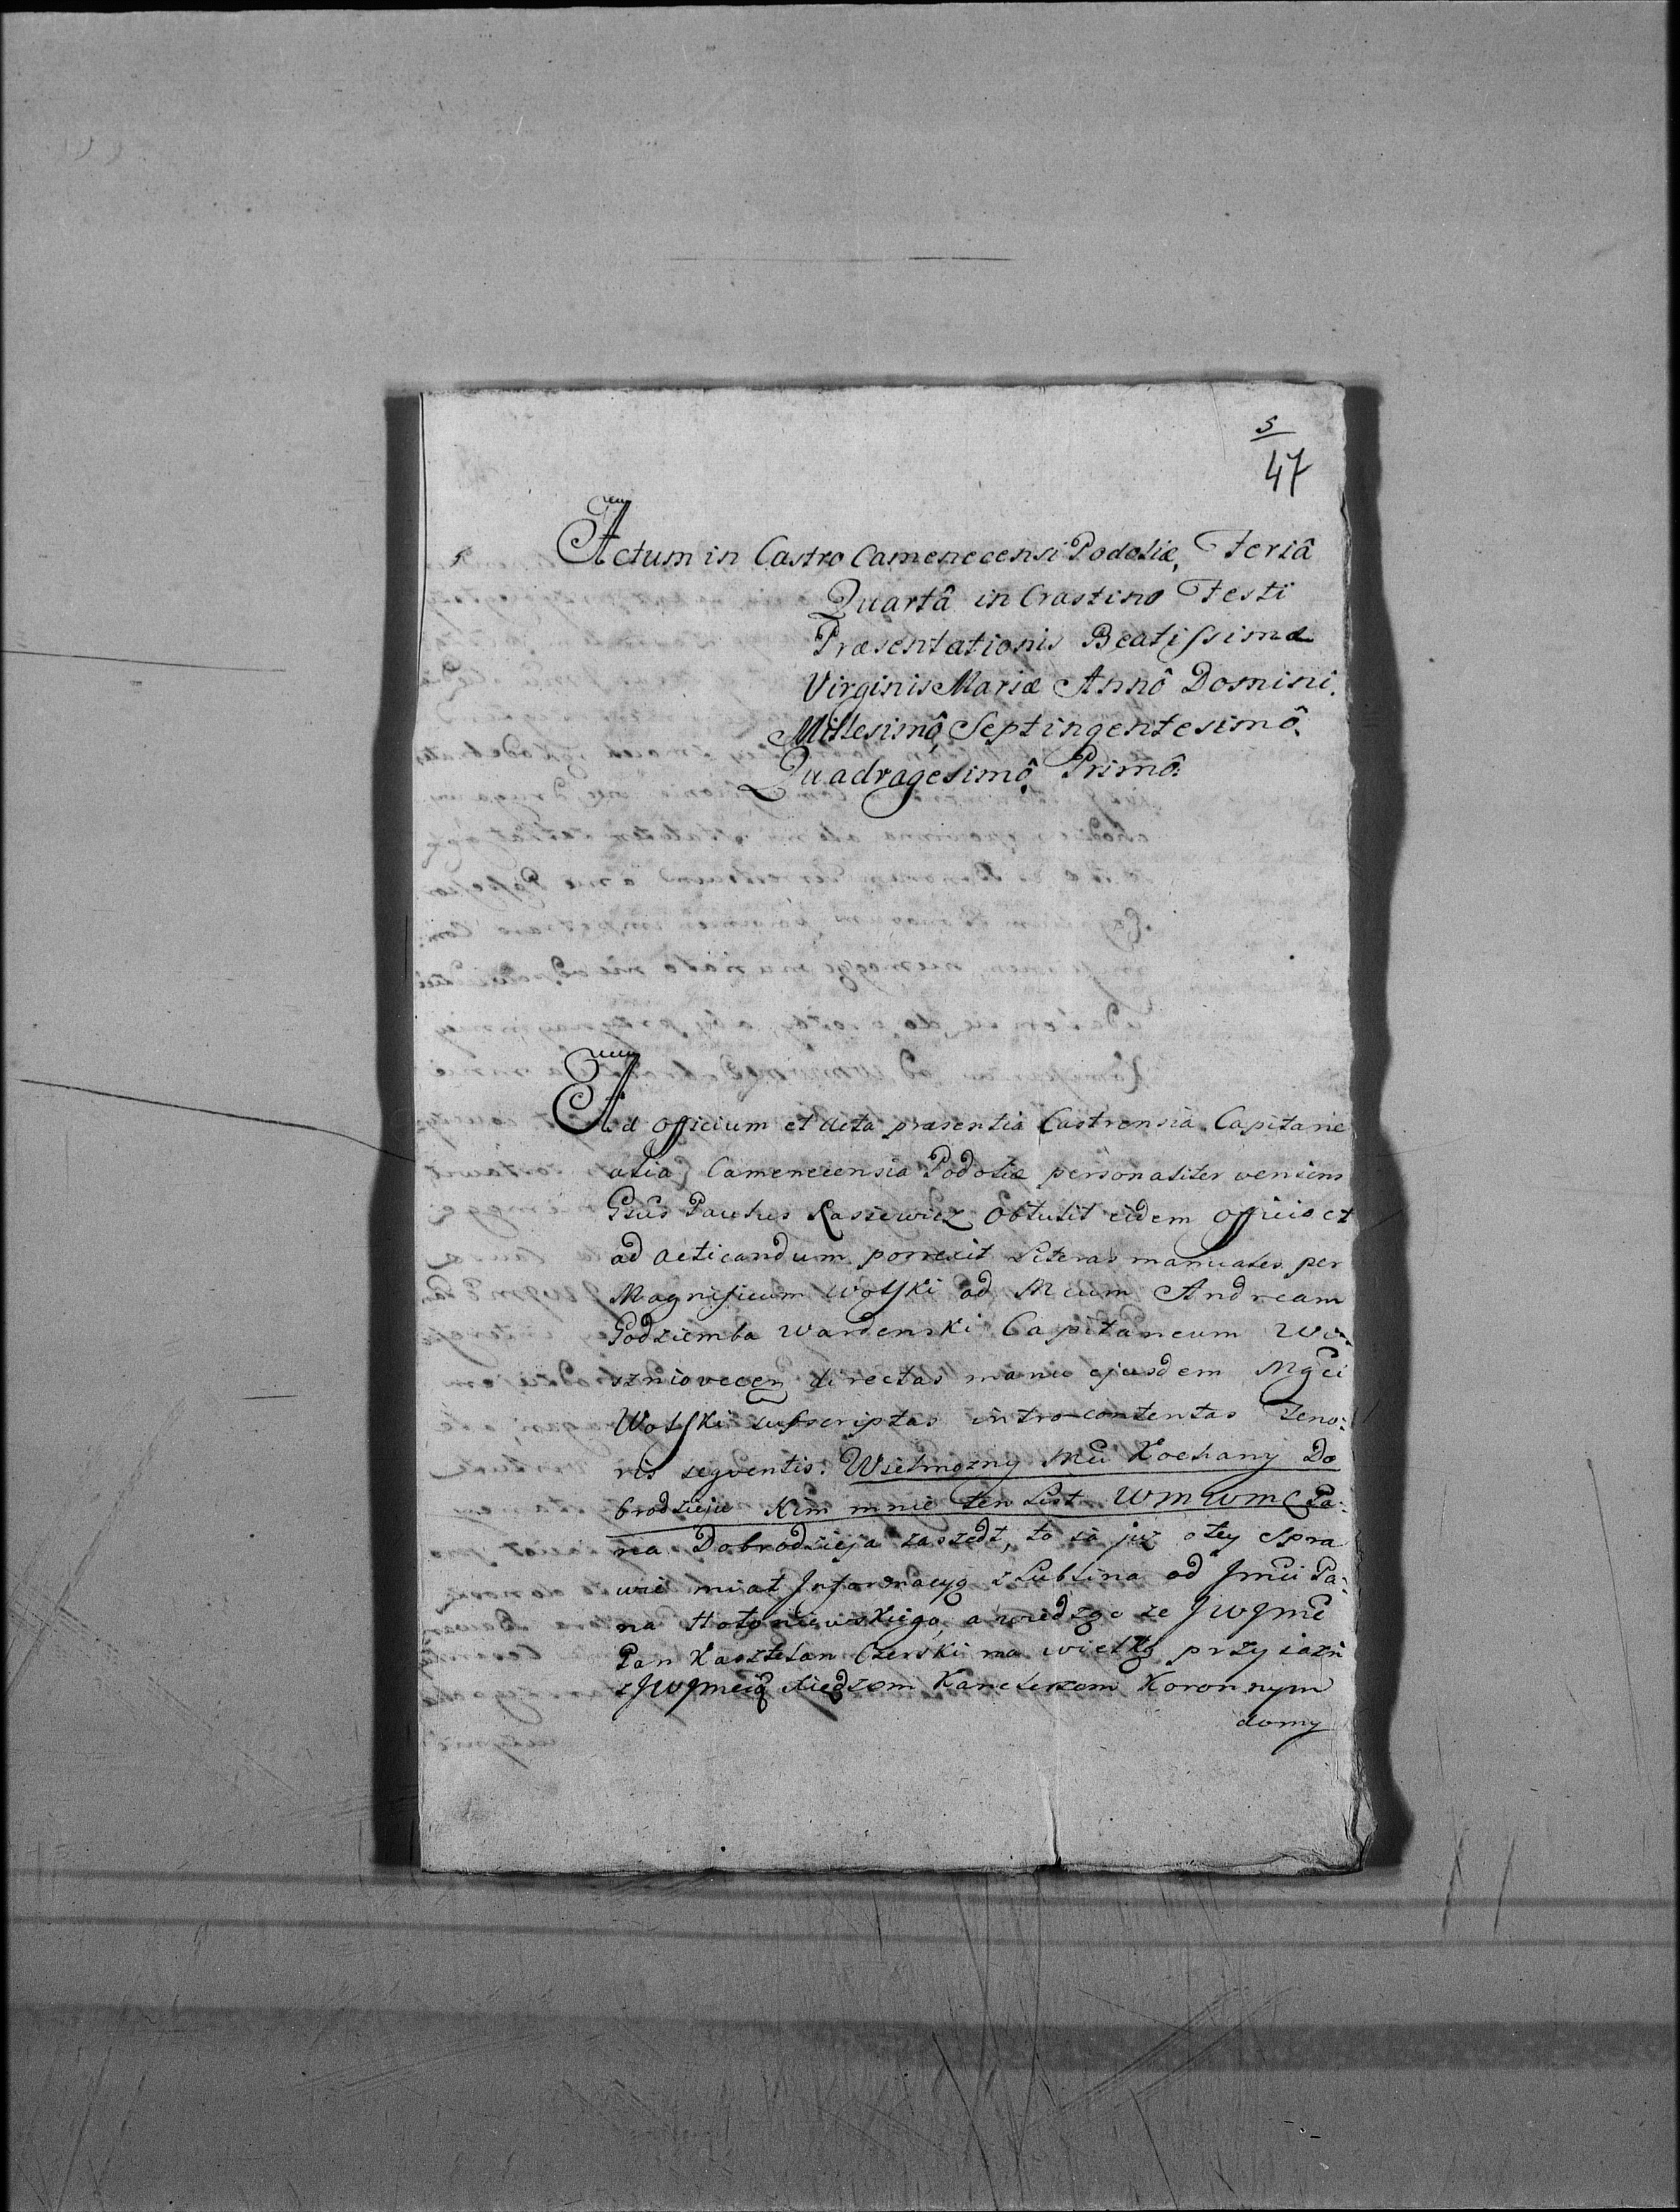 5
47
5
Actum in Castro Camenecensi Podoliæ, Feriâ
Quartâ in Crastino Festi
Præsentationis Beatissimæ
Virginis Mariæ Annô Domini
Millesimô Septingentesimô
Quadragesimô Primô.
Ad Officium et Acta præsentia Castrensia Capitane
alia Camenecensia Podoliæ personaliter veniens
Gsus Paulus Rasiewicz Obtulit eidem Officio et
ad acticandum porrexit Literas manuales per
Magnificum Wolski ad Mcum Andream
Godziemba Wardenski Capitaneum Wi:
szniovecen directas manu ejusdem Mgci
Wolski subscriptas introcontentas teno:
ris seqventis. Wielmozny Mci Kochany Do
brodzieju Nim mnie ten List WM WMC Pa:
na Dobrodzieja zaszedł, to ia juz o tey Spra
wie miał Informacyą z Lublina od Jmci Pa:
na Hołoniewskiego, a wiedząc ze JWJmc
Pan Kasztelan Czerski ma wielką przyiazn
z JWJmcią Xiędzem Kanclerzem Koronnym
domy